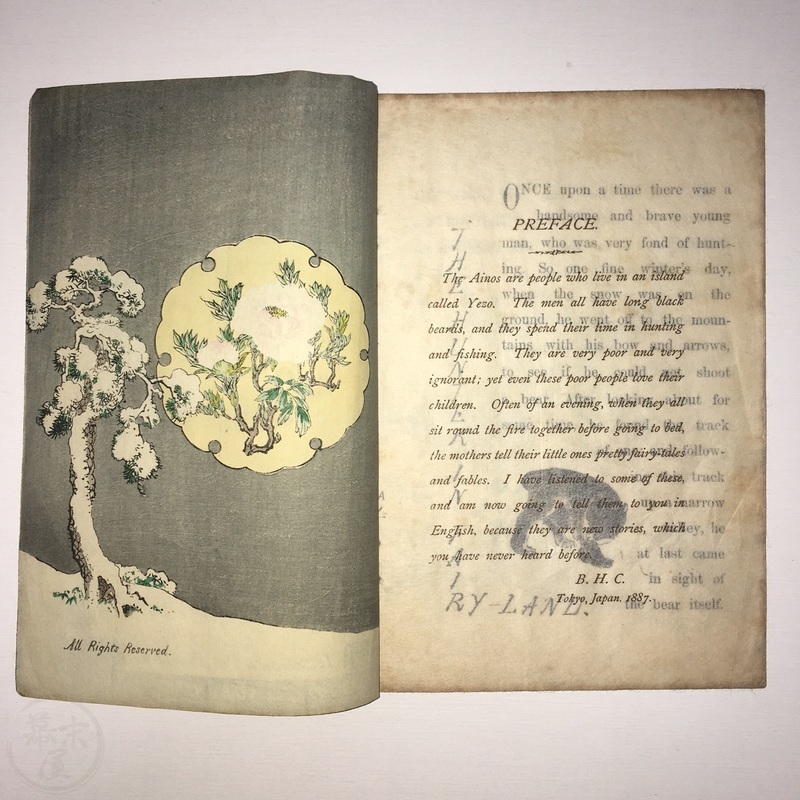 All Rights Reserved.
PREFACE.
The Ainos are people who live in an island
called Yezo. The men all have long black
beards, and they spend their time in hunting
and fishing. They are very poor and very
ignorant; yet even these poor people love their
children. Often of an evening, when they all
sit round the fire together before going to bed,
the mothers tell their little ones pretty fairy-tales
and fables. I have listened to some of these,
and am now going to tell them to you in
English, because they are new stories, which
you have never heard before.
B. H. C.
Tokyo, Japan. 1887.
THE HUNTER IN FAIRY-LAND.
ONCE upon a time there was a
handsome and brave young
man, who was very fond of hunt-
ing. So one fine winter's day,
when the snow was on the
ground, he went off to the moun-
tains with his bow and arrows,
to see if he could not shoot
a bear. After looking about for
track
follow-
track
narrow
he
at last came
in sight of
the bear itself.
幕末屋